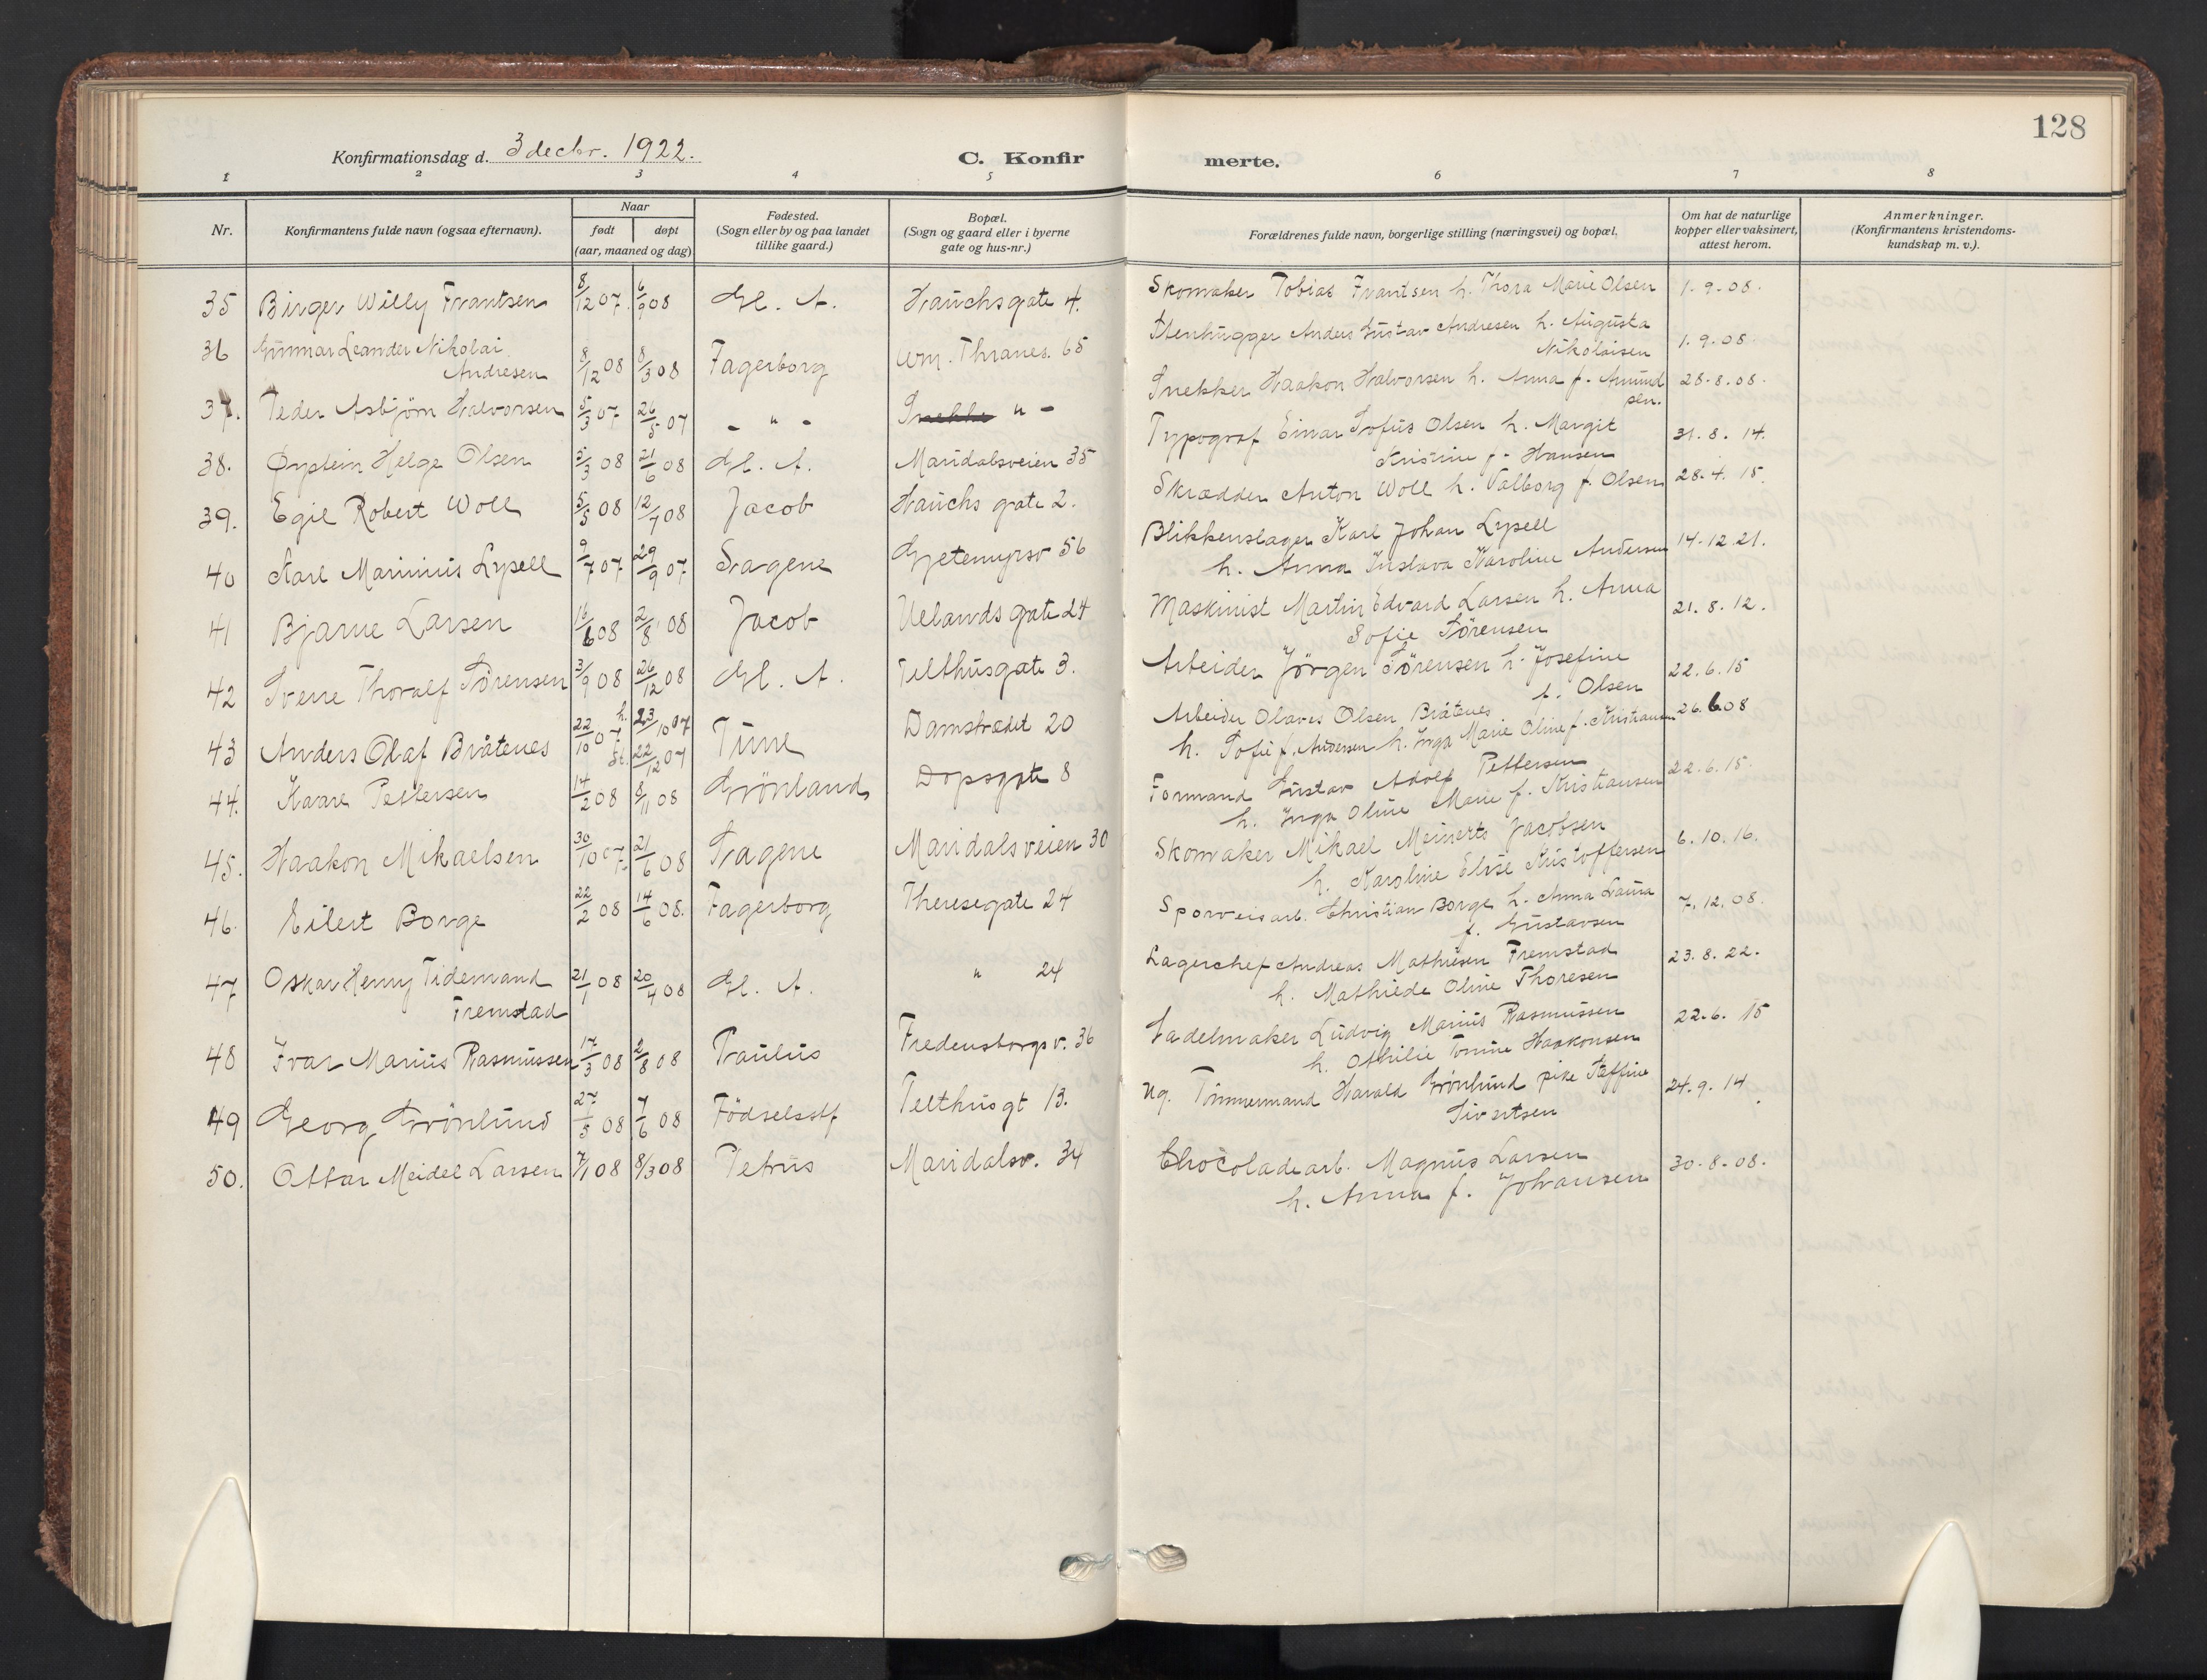 128
Konfirmationsdag d. 3 decbr. 1922.
C. Konfir
merte.
1 2 3 4 5 6 7 8
Nr.
Konfirmantens fulde navn (ogsaa efternavn).
Naar
født
døpt
(aar, maaned og dag)
Fødested.
(Sogn eller by og paa landet
tillike gaard.)
Bopæl.
(Sogn og gaard eller i byerne
gate og hus-nr.)
Forældrenes fulde navn, borgerlige stilling (næringsvei) og bopæl.
Om hat de naturlige
kopper eller vaksinert,
attest herom.
Anmerkninger.
(Konfirmantens kristendoms-
kundskap m. v.).
35 Birger Willy Frantsen 8/12 07. 6/9 08 Gl. A. Hauchsgate 4. Skomaker Tobias Frantsen h. Thora Marie Olsen 1.9.08.
36 Gunnar Leander Nikolai
Andresen 8/12 08 8/3 08 Fagerborg Wm. Thranes. 65 Stenhugger Anders Gustav Andresen h. Augusta
Nikolaisen 1.9.08
37. Peder Asbjörn Halvorsen 5/3 07 26/5 07 - " - " - Snekker Haakon Halvorsen h. Anna f. Amund
sen. 28.8.08.
38. Øystein Helge Olsen 3/3 08 21/6 08 Gl. A. Maridalsveien 35 Typograf Einar Sofus Olsen h. Margit
Kristine f. Hansen 31.8.14.
39. Egil Robert Woll 5/5 08 12/7 08 Jacob Hauchs gate 2. Skrædder Anton Woll h. Valborg f. Olsen 28.4.15.
40 Karl Marinius Lysell 9/7 07 29/9 07. Sagene Gjetemyrsv 56 Blikkenslager Karl Johan Lysell
h. Anna Gustava Karoline Andersen 14.12.21.
41 Bjarne Larsen 16/6 08 2/8 08 Jacob Uelands gate 24 Maskinist Martin Edvard Larsen h. Anna
Sofie Sörensen 21.8.12.
42 Sverre Thoralf Sörensen 3/9 08 26/12 08 Gl. A. Telthusgate 3. Arbeider Jörgen Sörensen h. Josefine
f. Olsen 22.6.15
43 Anders Olaf Bråtenes 22/10 07 h. 23/10 07 St. 22/12 07 Tune Damstrædet 20 Arbeider Olaves Olsen Bråtenes
h. Sofie f. Andersen h. Inga Marie Oline f. Kristiansen 26.6.08
44. Kaare Pettersen 14/2 08 8/11 08 Grönland Dopsgate 8 Formand Gustav Adolf Pettersen
h. Inga Oline Marie f. Kristiansen 22.6.15.
45. Haakon Mikaelsen 30/10 07. 21/6 08 Sagene Maridalsveien 30 Skomaker Mikael Meinerts Jacobsen
h. Karoline Elise Kristoffersen 6.10.16.
46. Eilert Borge 22/2 08 14/6 08. Fagerborg Theresegate 24 Sporveisarb. Christian Borge h. Anna Laura
f. Gustavsen 7.12.08.
47 Oskar Henry Tidemand
Fremstad 21/1 08 20/4 08 Gl. A. " 24 Lagerchef Andreas Mathiesen Fremstad
h. Mathilde Oline Thoresen 23.8.22.
48 Ivar Marius Rasmussen 17/3 08 2/8 08 Paulus Fredensborgsv. 36 Sadelmaker Ludvig Marius Rasmussen
h. Othilie Tomine Haakonsen 22.6.15
49 Georg Grönlund 27/5 08 7/6 08 Födselsstf Telthusgt 13. Ug. Tömmermand Harald Grönlund pike Steffine
Sivertsen 24.9.14.
50. Ottar Meidel Larsen 7/1 08 8/3 08 Petrus Maridalsv. 34 Chocoladearb. Magnus Larsen
h. Anna f. Johansen 30.8.08.